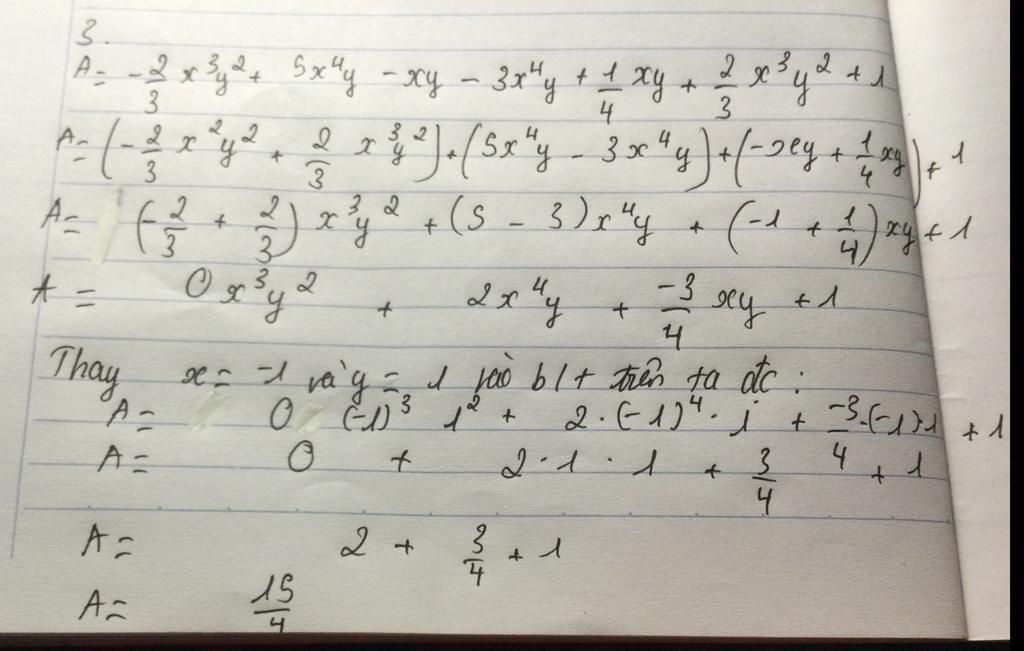 3.
A = -2/3 x³y² + 5x⁴y - xy - 3x⁴y + 1/4 xy + 2/3 x³y² + 1
A = (-2/3 x²y² + 2/3 x³y²) + (5x⁴y - 3x⁴y) + (-xy + 1/4 xy) + 1
A = (-2/3 + 2/3) x³y² + (5 - 3) x⁴y + (-1 + 1/4) xy + 1
A = 0x³y² + 2x⁴y + -3/4 xy + 1
Thay x = -1 và y = 1 vào b/t trên ta đc :
A = 0 (-1)³ 1² + 2 · (-1)⁴ · 1 + -3/4 · (-1) · 1 + 1
A = 0 + 2 · 1 · 1 + 3/4 + 1
A = 2 + 3/4 + 1
A = 15/4